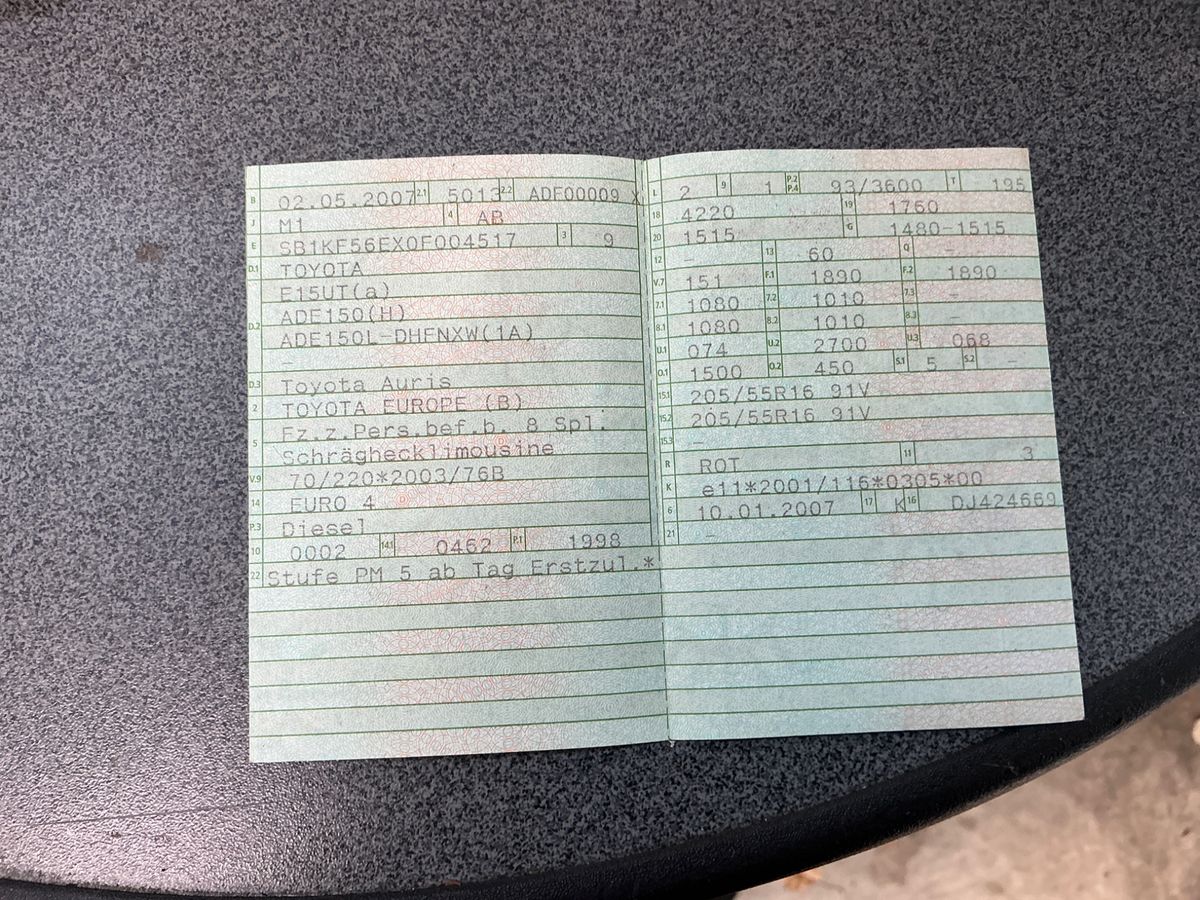 B 02.05.2007 2.1 5013 2.2 ADF00009 X
J M1 4 AB
E SB1KF56EX0F004517 3 9
D.1 TOYOTA
E15UT(a)
D.2 ADE150(H)
ADE150L-DHFNXW(1A)
-
D.3 Toyota Auris
2 TOYOTA EUROPE (B)
5 Fz.z.Pers.bef.b. 8 Spl.
Schräghecklimousine
V.9 70/220*2003/76B
14 EURO 4
P.3 Diesel
10 0002 14.1 0462 P.1 1998
22 Stufe PM 5 ab Tag Erstzul.*
L 2 9 1 P.2 P.4 93/3600 T 195
18 4220 19 1760
20 1515 G 1480-1515
12 - 13 60 Q -
V.7 151 F.1 1890 F.2 1890
7.1 1080 7.2 1010 7.3 -
8.1 1080 8.2 1010 8.3 -
U.1 074 U.2 2700 U.3 068
O.1 1500 O.2 450 S.1 5 S.2 -
15.1 205/55R16 91V
15.2 205/55R16 91V
15.3 -
R ROT 11 3
K e11*2001/116*0305*00
6 10.01.2007 17 K 16 DJ424669
21 -